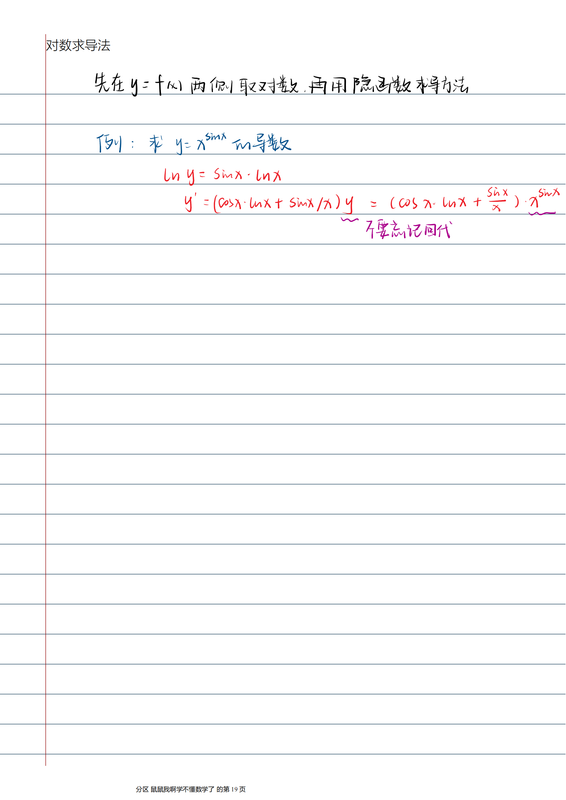 对数求导法
先在 y = f(x) 两侧取对数,再用隐函数求导方法
例: 求 y = x^sinx 的导数
ln y = sinx · lnx
y' = (cosx · lnx + sinx/x) y = (cos x · lnx + sinx/x) · x^sinx
不要忘记回代
分区 鼠鼠我啊学不懂数学了 的第 19 页